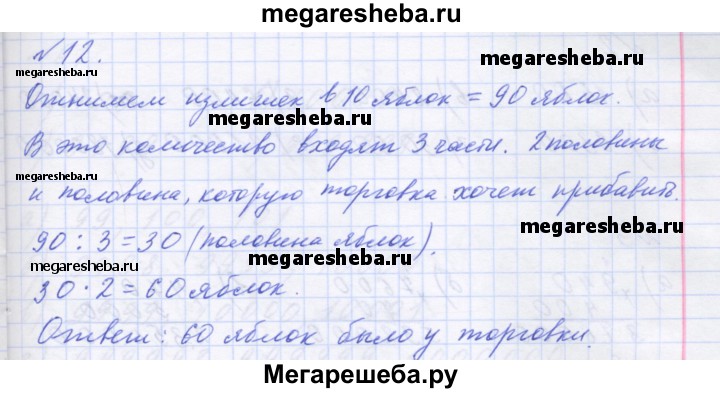 megaresheba.ru
№12.
megaresheba.ru
megaresheba.ru
Отнимем излишек в 10 яблок = 90 яблок.
megaresheba.ru
В это количество входят 3 части. 2 половины
и половина, которую торговка хочет прибавить.
megaresheba.ru
90 : 3 = 30 (половина яблок).
megaresheba.ru
megaresheba.ru
30 · 2 = 60 яблок.
Ответ: 60 яблок было у торговки.
Мегарешеба.ру